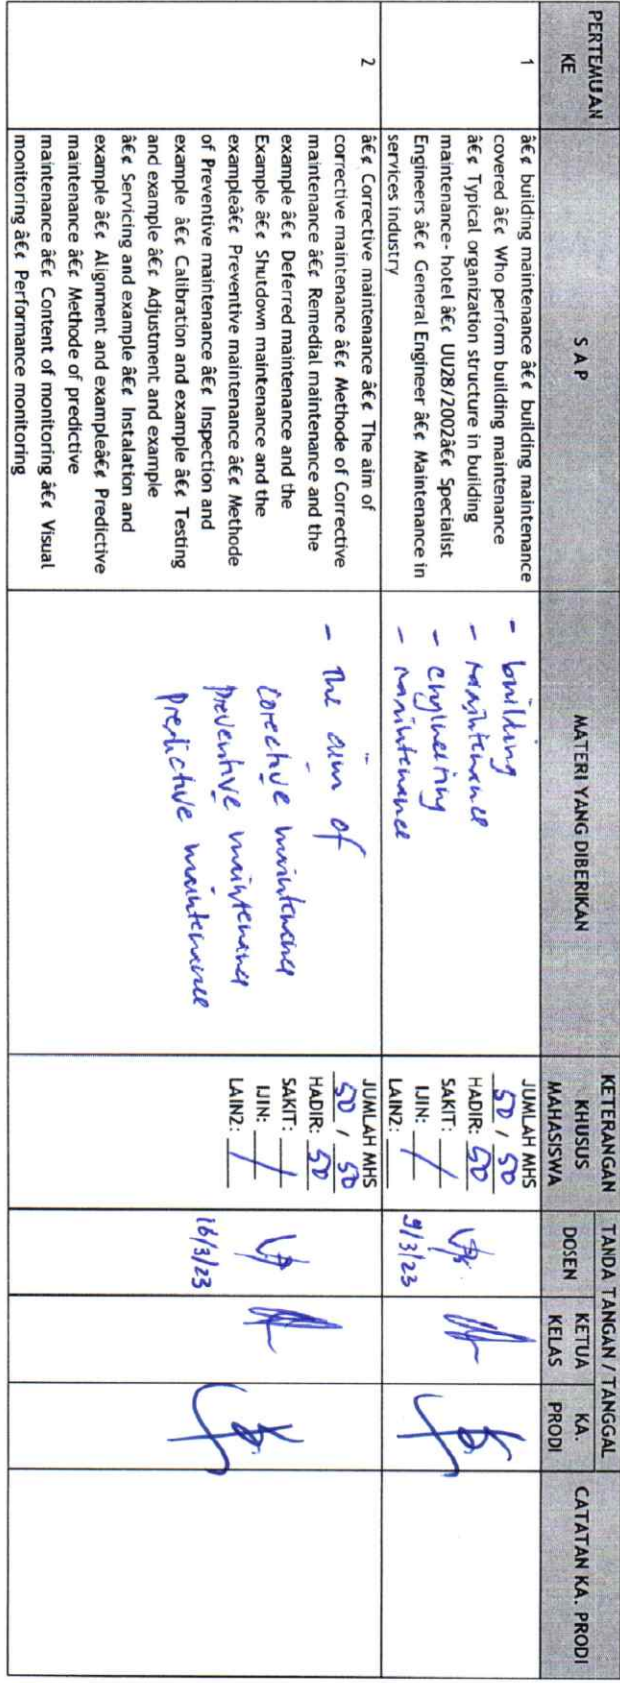 PERTEMUAN KE
S A P
MATERI YANG DIBERIKAN
KETERANGAN KHUSUS MAHASISWA
TANDA TANGAN / TANGGAL
DOSEN
KETUA KELAS
KA. PRODI
CATATAN KA. PRODI
1
â€¢ building maintenance â€¢ building maintenance
covered â€¢ Who perform building maintenance
â€¢ Typical organization structure in building
maintenance- hotel â€¢ UU28/2002â€¢ Specialist
Engineers â€¢ General Engineer â€¢ Maintenance in
services industry
- building
- maintenance
- engineering
- maintenance
JUMLAH MHS
50 / 50
HADIR: 50
SAKIT:
IJIN: /
LAIN2:
9/3/23
2
â€¢ Corrective maintenance â€¢ The aim of
corrective maintenance â€¢ Methode of Corrective
maintenance â€¢ Remedial maintenance and the
example â€¢ Deferred maintenance and the
Example â€¢ Shutdown maintenance and the
exampleâ€¢ Preventive maintenance â€¢ Methode
of Preventive maintenance â€¢ Inspection and
example â€¢ Calibration and example â€¢ Testing
and example â€¢ Adjustment and example
â€¢ Servicing and example â€¢ Instalation and
example â€¢ Alignment and exampleâ€¢ Predictive
maintenance â€¢ Methode of predictive
maintenance â€¢ Content of monitoring â€¢ Visual
monitoring â€¢ Performance monitoring
- The aim of
Corective maintenance
Preventive maintenance
Predictive maintenance
JUMLAH MHS
50 / 50
HADIR: 50
SAKIT:
IJIN: /
LAIN2:
16/3/23